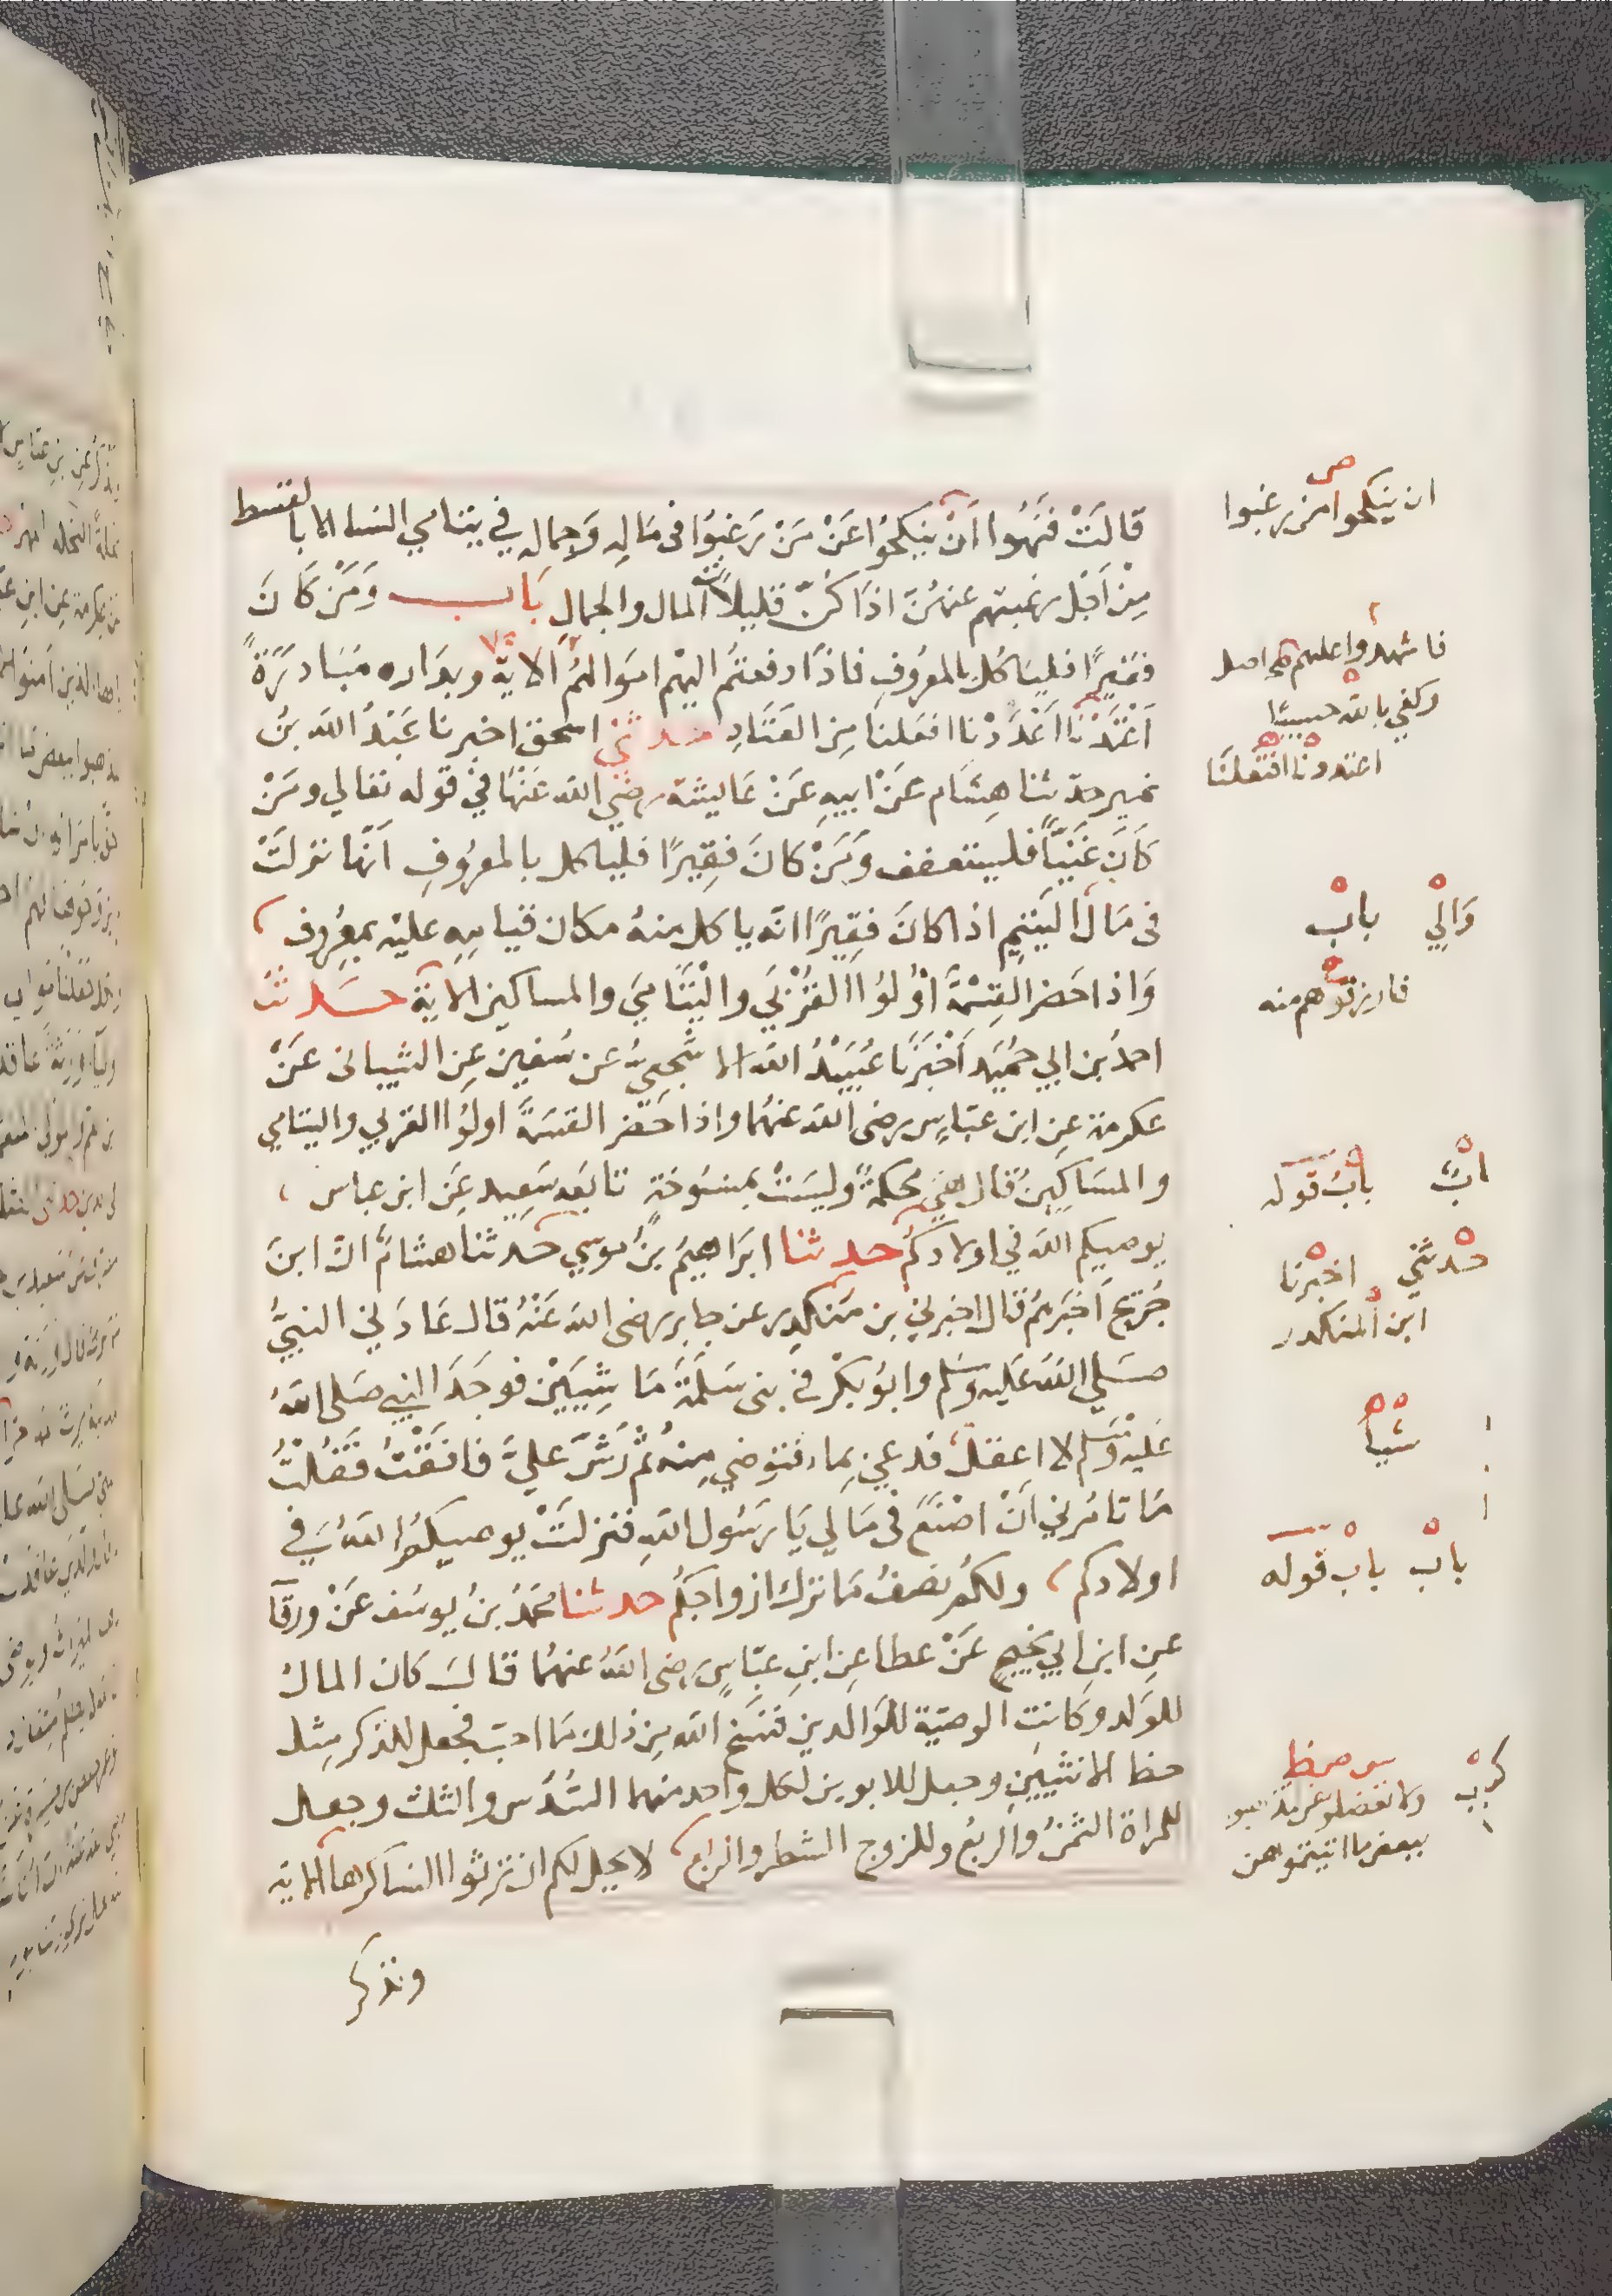 قَالَتْ فَنُهُوا أَنْ يَنكِحُوا عَنْ مَنْ رَغِبُوا فى مَالِهِ وَجمالِهِ في يتامي النسا الا بالقسط
مِنْ اَجْل رغبتهم عنهُنَ اذَا كُنّ قليلاتَ المال والجمالِ بَاب وَمَنْ كَانَ
فقيرًا فليَاكُل بالمعرُوفِ فاذَا دفعتُمُ اليْهم اموَالهُمُ الاية وبدَارا مُبَادَرَةً
اَعْتَدْنَا اَعْدَدْنا افعَلنا مِنَ العَتَادِ حدثني اسحق اخبرنا عَبْدُ الله بنُ
نمير حدثنا هِشام عَنْ ابيهِ عَنْ عَايشة رضي الله عَنْهَا في قوله تعالي ومَنْ
كَانَ غَنيّاً فليستعفف وَمَنْ كانَ فقِيرًا فلياكل بالمعرُوفِ اَنّها نزلتْ
فى مَال اليَتيمِ اذا كانَ فقِيرًا انه ياكل منهُ مكان قيامِهِ عليْهِ بمعرُوف
وَاذا حَضر القِسْمَةَ أوْلُوُا القُرْبَي واليْتَامَيَ والمساكين الاية حَدثنا
احمدُ بن ابي حُمَيْد اَخْبَرَنَا عُبَيْدُ الله الاشجعيّ عن سُفين عِن الشيبانى عَنْ
عكرمة عن ابن عبّاسٍ رضى الله عنهُما واذا حَضَر القسمَةَ اولوُا القربي واليتامي
والمسَاكِينُ قال هِيَ محكمَةٌ وليسَتْ بمنسُوخةٍ تابَعَه سَعيِد عَنِ ابن عباس
يوصيكم الله في اولادكُم حدثنا ابرَاهيمُ بنُ موسي حَدثنا هشامٌ انّ ابنَ
جُرَيْج اَخْبَرَهُمْ قال اخبرني بن مُنكدِر عن جابر رضى الله عَنْهُ قال عَادَني النبيُّ
صَلي اللهُ عَليه وسَلم وابُو بكْر في بنى سَلِمَةَ مَاشِيَيْن فوجَدَنى النبي صَلى اللهُ
عَليه وسَلم لا اعقل فدعى بماء فتوضي مِنهُ ثُمّ رَشَّ عليَّ فافَقْتُ فَقُلْتُ
مَا تامُرني اَنْ اصْنَعَ فى مَالي يَا رسُول اللهِ فنزلَتْ يوصيكمُ اللهُ في
اولادكم ولكُمْ نصفُ مَا ترَك ازواجكُمْ حدثنا محمّدُ بنُ يوسُف عَنْ ورقآ
عنِ ابنِ ابي نجيح عَنْ عطا عِن ابنِ عبّاسٍ رضى اللهُ عنهُما قالَ كان المالُ
للوَلَد وكانتِ الوصيّة للوَالدين فنَسَخ الله مِن ذلك مَا احبّ فجعل للذكر مِثل
حظ الانثيينِ وجعل للابوين لكل واحد منهما السُّدُس والثلث وجعل
للمراة الثمنُ والربعُ وللزوج الشطر والربع لا يحل لكم ان ترثوا النسا كرها الاية
ويذكر
ان ينكحوا من رغبوا
فاشهدوا عليهم
وكفي بالله حسيبًا
اعتدونا افتعلنَا
وَالي باب
فارزقوهم منه
باب باب قوله
حدثني اخبرنا
ابن المنكدر
شيا
باب باب قوله
ببعض ما اتيتموهن